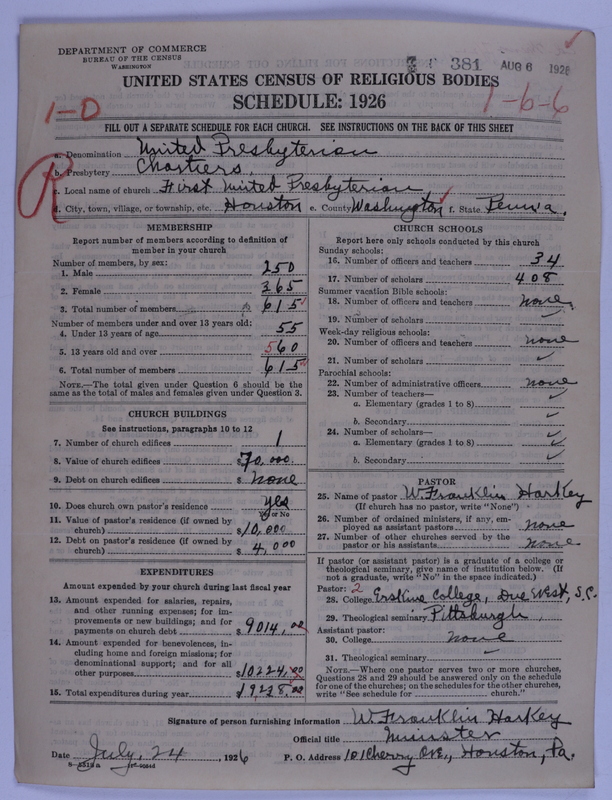 DEPARTMENT OF COMMERCE
BUREAU OF THE CENSUS
WASHINGTON
381 AUG 6 1926
UNITED STATES CENSUS OF RELIGIOUS BODIES
SCHEDULE: 1926
1-D
1-6-6
FILL OUT A SEPARATE SCHEDULE FOR EACH CHURCH. SEE INSTRUCTIONS ON THE BACK OF THIS SHEET
R
a. Denomination United Presbyterian
b. Presbytery Chartiers,
c. Local name of church First United Presbyterian
d. City, town, village, or township, etc. Houston e. County Washington f. State Penn'a.
MEMBERSHIP
Report number of members according to definition of
member in your church
Number of members, by sex:
1. Male 250
2. Female 365
3. Total number of members 615
Number of members under and over 13 years old:
4. Under 13 years of age 55
5. 13 years old and over 560
6. Total number of members 615
NOTE.—The total given under Question 6 should be the
same as the total of males and females given under Question 3.
CHURCH BUILDINGS
See instructions, paragraphs 10 to 12
7. Number of church edifices 1
8. Value of church edifices $70,000.
9. Debt on church edifices $ none
10. Does church own pastor's residence yes
Yes or No
11. Value of pastor's residence (if owned by
church) $10,000
12. Debt on pastor's residence (if owned by
church) $ 4,000
EXPENDITURES
Amount expended by your church during last fiscal year
13. Amount expended for salaries, repairs,
and other running expenses; for im-
provements or new buildings; and for
payments on church debt $9014.00
14. Amount expended for benevolences, in-
cluding home and foreign missions; for
denominational support; and for all
other purposes $10224.00
15. Total expenditures during year $19,238.00
CHURCH SCHOOLS
Report here only schools conducted by this church
Sunday schools:
16. Number of officers and teachers 34
17. Number of scholars 408
Summer vacation Bible schools:
18. Number of officers and teachers none
19. Number of scholars ✓
Week-day religious schools:
20. Number of officers and teachers none
21. Number of scholars ✓
Parochial schools:
22. Number of administrative officers none
23. Number of teachers— ✓
a. Elementary (grades 1 to 8) ✓
b. Secondary ✓
24. Number of scholars— ✓
a. Elementary (grades 1 to 8) ✓
b. Secondary ✓
PASTOR
25. Name of pastor W. Franklin Harkey
(If church has no pastor, write "None")
26. Number of ordained ministers, if any, em-
ployed as assistant pastors none
27. Number of other churches served by the
pastor or his assistants none
If pastor (or assistant pastor) is a graduate of a college or
theological seminary, give name of institution below. (If
not a graduate, write "No" in the space indicated.)
Pastor: 2
28. College Erskine College, Due West, S.C.
29. Theological seminary Pittsburgh
Assistant pastor:
30. College none
31. Theological seminary ✓
NOTE.—Where one pastor serves two or more churches,
Questions 28 and 29 should be answered only on the schedule
for one of the churches; on the schedules for the other churches,
write "See schedule for church."
Signature of person furnishing information W. Franklin Harkey
Official title Minister
Date July, 24, 1926 P. O. Address 101 Cherry Ave., Houston, Pa.